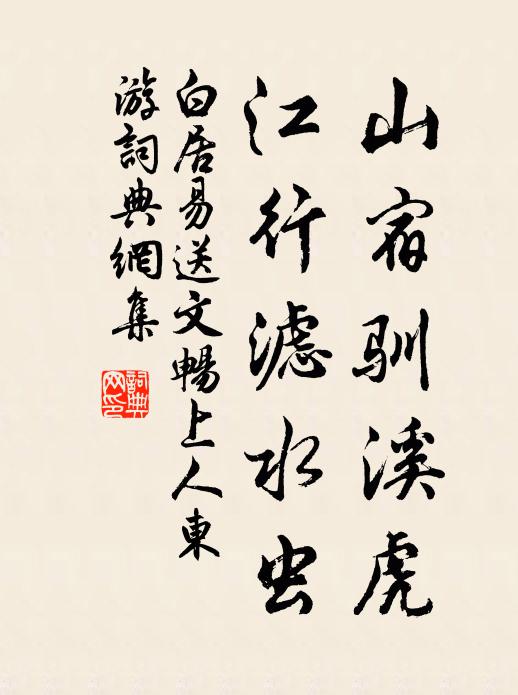 山宿驯溪虎
江行滤水虫
白居易送文暢上人東
游詞典網集
詞典
网印